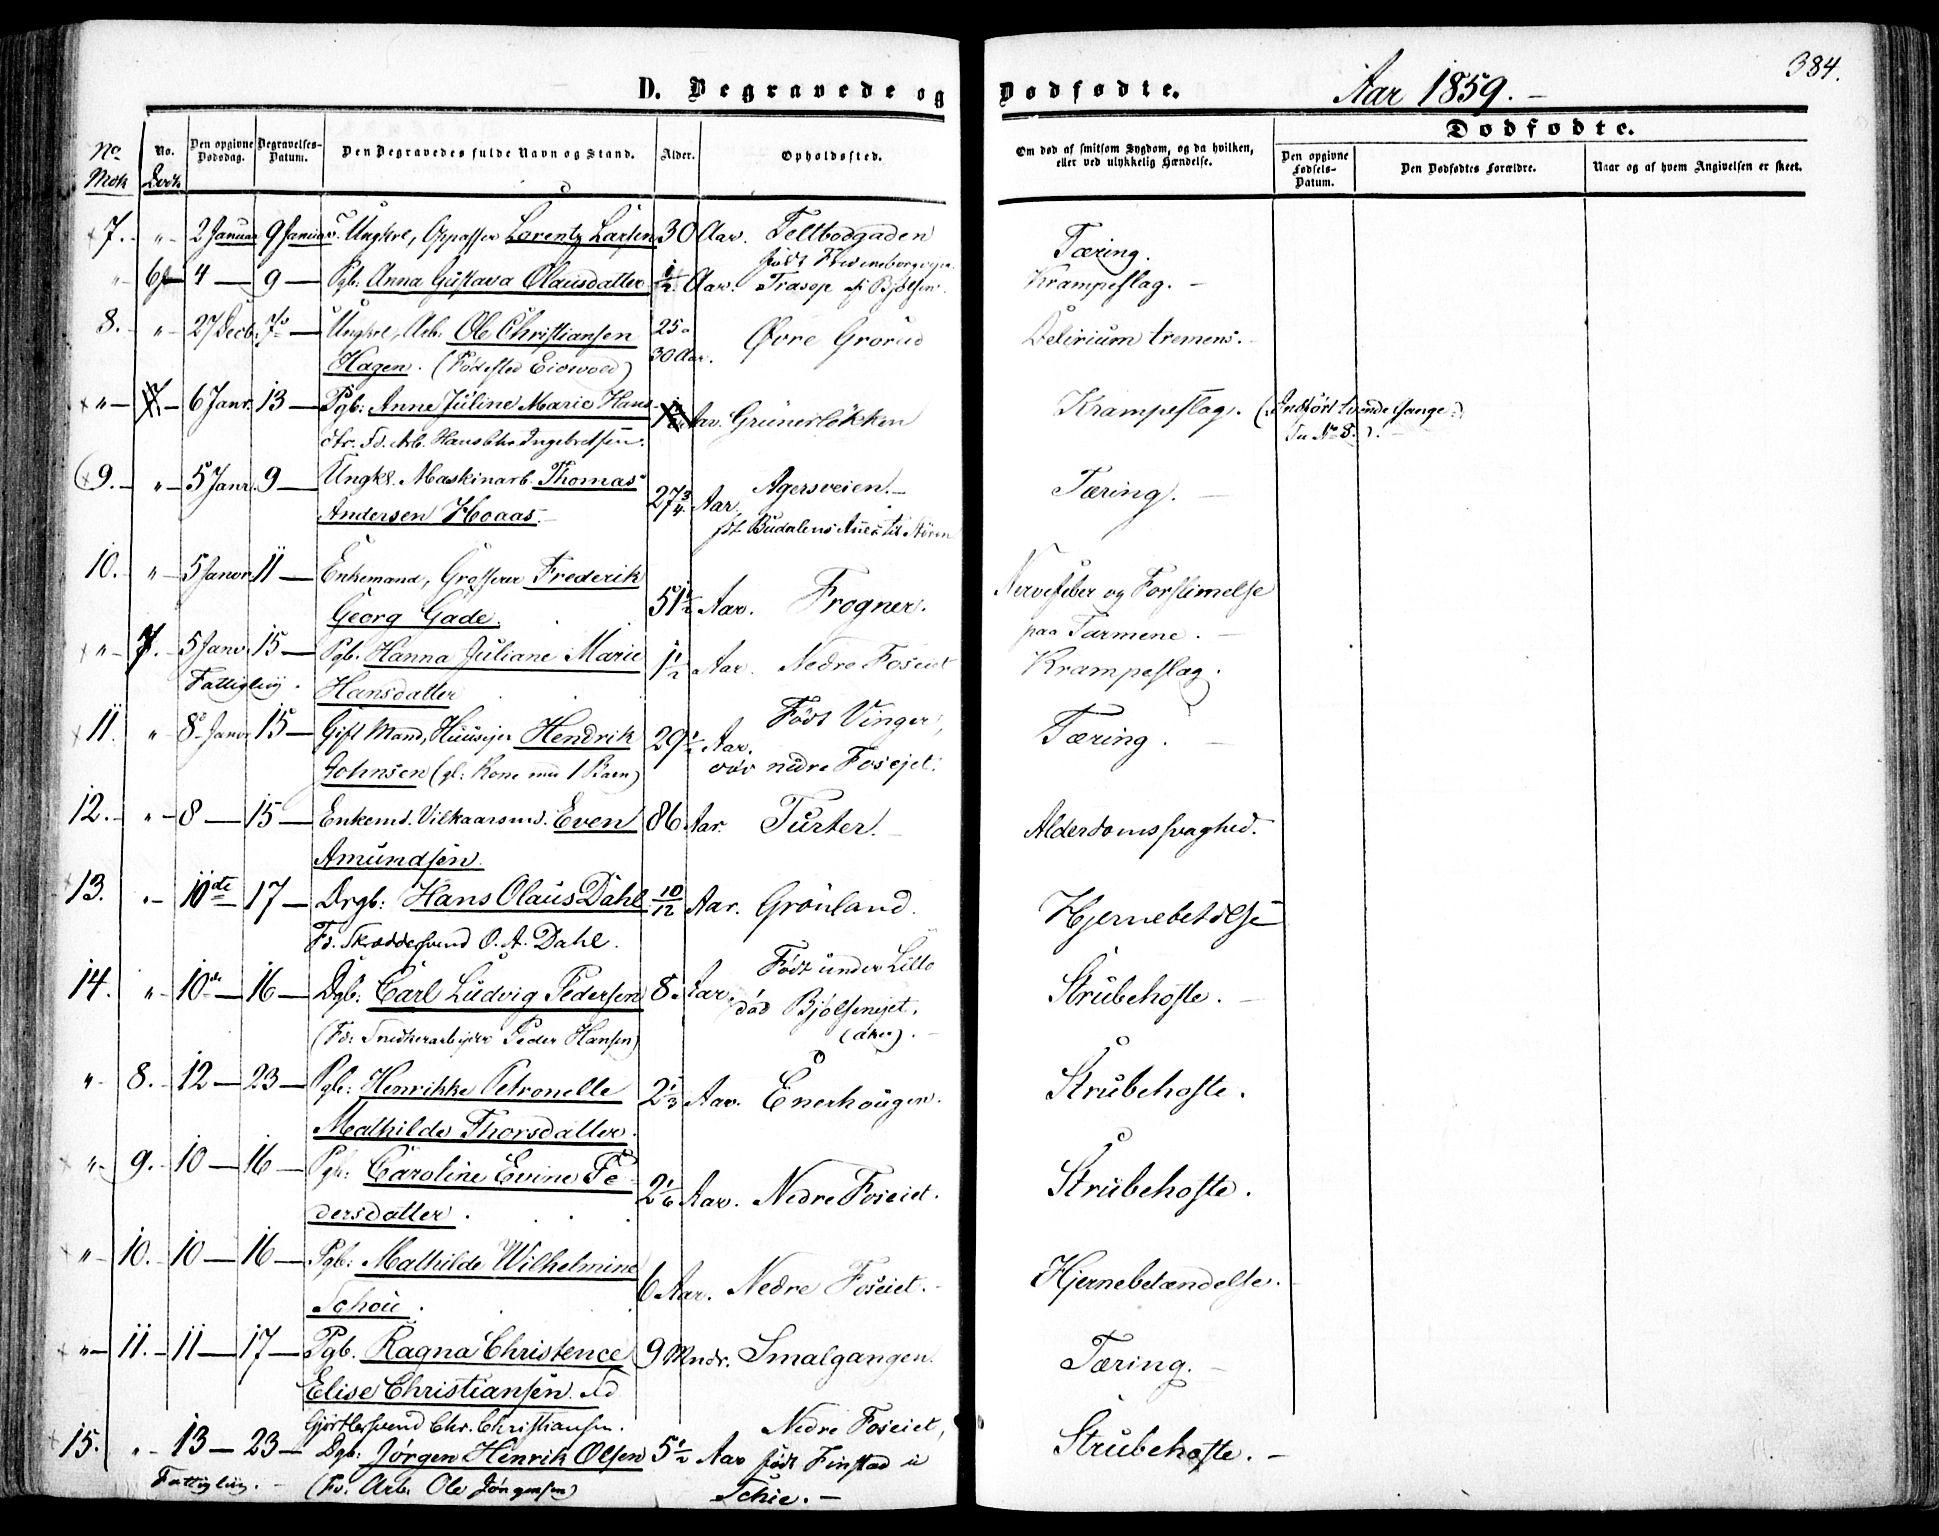 384.
D. Begravede og Dødfødte. Aar 1859. –
Dødfødte.
No Mck
No. Qvck
Den opgivne Dødsdag.
Begravelses-Datum.
Den Begravedes fulde Navn og Stand.
Alder.
Opholdssted.
Om død af smitsom Sygdom, og da hvilken, eller ved ulykkelig Hændelse.
Den opgivne Fødsels-Datum.
Den Dødfødtes Forældre.
Naar og af hvem Angivelsen er skeet.
7. „ 2 Januar 9 Januar. Ungkrl, Oppasser Lorentz Larsen 30 Aar. Teltbodgaden Tæring.
født Fredensborgveien
„ 6 4 — 9 — Pgb: Anna Gustava Olausdatter 1/2 Aar. Trasop Bjølsen. Krampeslag. –
8. „ 27 Decb. 7 — Ungkrl, Arb. Ole Christiansen 25 a Øvre Grorud Delirium tremens. –
Hagen. (Fødested Eidsvold) 30 Aar.
„ – 7 – 6 Janr. 13 — Pgb: Anne Juline Marie Hans- Aar. Grünerløkken Krampeslag. (Anført tvende Gange.
dtr. Fd. Arb. Hans Ingebretsen. No 8.). –
9. „ 5 Janr. 9 — Ungkl. Maskinarb. Thomas Agersveien. – Tæring. –
Andersen Hoaas. – 27 3/4 Aar. føt Budalens Anex til Støren
10. „ 5 Janvr 11 — Enkemand, Grosserer Frederik Nervefeber og Forslimelse
Georg Gade. 51 1/2 Aar. Frogner. paa Tarmene. –
„ 7. 5 Janv. 15 — Pgb. Hanna Juliane Marie 1 1/2 Aar. Nedre Foseiet Krampeslag.
Fattiglig. Hansdatter
11. „ 8 Janv 15 — Gift Mand, Huusejer Hendrik 29 1/2 Aar. Født Vinger, Tæring. –
Johnsen (gl: Kone med 1 Barn) nedre Fosejet.
12. – „ 8 — 15 — Enkemd. Vilkaarsmd. Even 86 Aar. Turter. – Alderdomssvaghed.
Amundsen.
13. „ 10de 17 — Drgb: Hans Olaus Dahl 10/12 Aar. Grønland. Hjernebetdlse
Fd. Skræddersvend O. A. Dahl.
14. „ 10de — 16 — Dgb: Carl Ludvig Pedersen 8. Aar. Født under Lillo Strubehoste. –
(Fd: Snedkerarbejder Peder Hansen) død Bjølsenejet.
(Aker). –
„ 8. 12 — 23 — Pgb: Henrikke Petronelle 2 1/3 Aar. Enerhougen. Strubehoste.
Mathilde Thorsdatter.
„ 9. 10 — 16 — Pgb: Caroline Evine Pe- 2 1/6 Aar. Nedre Foseiet. Strubehoste.
dersdatter.
„ 10. 10 — 16 — Pgb: Mathilde Wilhelmine 6 Aar. Nedre Foseiet. – Hjernebetændelse.
Schou.
„ 11. 11 — 17 — Pgb. Ragna Christence 9 Mndr. Smalgangen. Tæring. –
Elise Christiansen. Fd
Gjørtlersvend Chr. Christiansen.
15. „ 13 — 23 — Dgb: Jørgen Henrik Olsen 5 1/2 Aar Nedre Foseiet, født Finstad i Strubehoste. –
Fattiglig. – (Fd. Arb. Ole Jørgensen) Schie. –